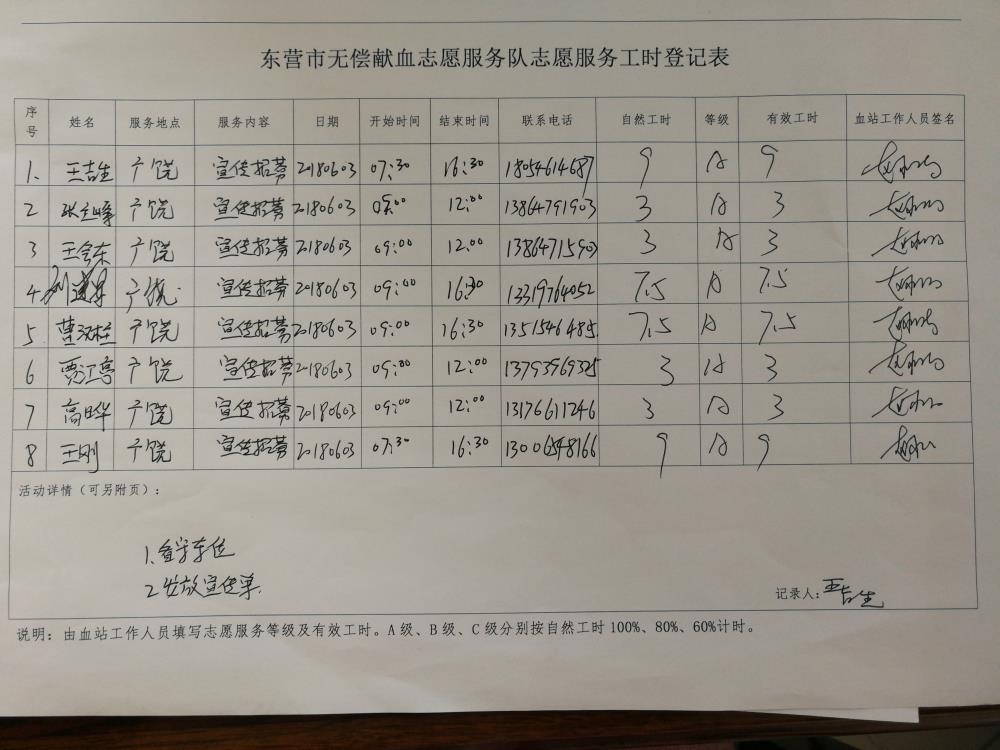 东营市无偿献血志愿服务队志愿服务工时登记表
序号 姓名 服务地点 服务内容 日期 开始时间 结束时间 联系电话 自然工时 等级 有效工时 血站工作人员签名
1. 王吉生 广饶 宣传招募 20180603 07:30 16:30 18054614687 9 A 9
2 张立峰 广饶 宣传招募 20180603 09:00 12:00 13864791903 3 A 3
3 王会东 广饶 宣传招募 20180603 09:00 12:00 13864715903 3 A 3
4 广饶 宣传招募 20180603 09:00 16:30 13319764052 7.5 A 7.5
5 曹汉柱 广饶 宣传招募 20180603 09:00 16:30 1351546485 7.5 A 7.5
6 贾江亭 广饶 宣传招募 20180603 09:00 12:00 13793969325 3 A 3
7 高晔 广饶 宣传招募 20180603 09:00 12:00 13176611246 3 A 3
8 王刚 广饶 宣传招募 20180603 07:30 16:30 13006548166 9 A 9
活动详情（可另附页）：
1.看守车位
2.发放宣传单.
记录人：王吉生
说明：由血站工作人员填写志愿服务等级及有效工时。A级、B级、C级分别按自然工时100%、80%、60%计时。